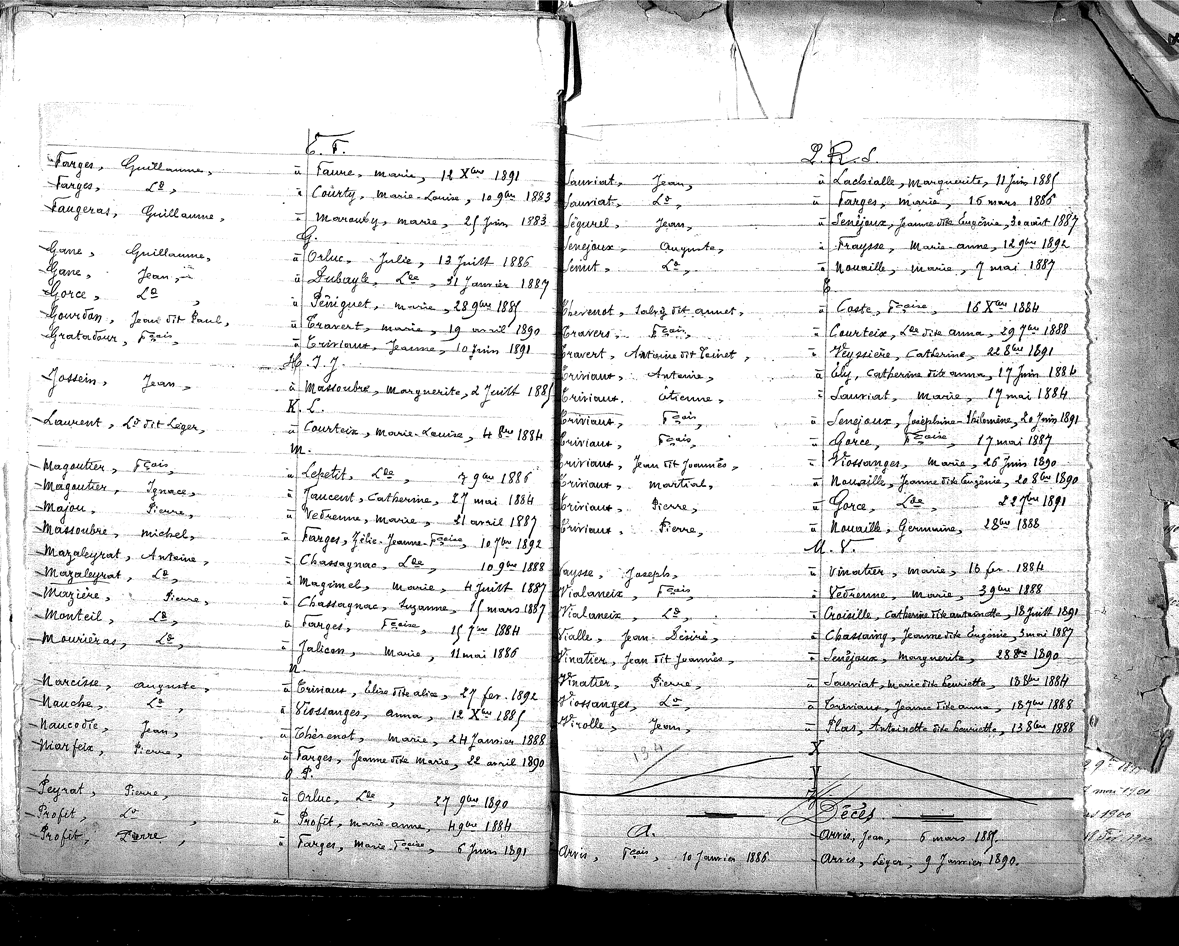 E. F.
Farges, Guillaume, à Faure, Marie, 12 Xbre 1891
Farges, Ld, à Courty, Marie-Louise, 10 9bre 1883
Faugeras, Guillaume, à Marouby, Marie, 25 Juin 1883
G.
Gane, Guillaume, à Orluc, Julie, 13 Juillt 1886
Gane, Jean, à Dubayle, Lde, 31 Janvier 1887
Gorce, Ld, à Péniguet, Marie, 28 9bre 1885
Gourdon, Jean dit Paul, à Travert, Marie, 19 avril 1890
Gratadour, Fçois, à Triviaux, Jeanne, 10 Juin 1891
H. I. J.
Jossein, Jean, à Massoubre, Marguerite, 2 Juillt 1885
K. L.
Laurent, Ld dit Léger, à Courteix, Marie-Louise, 4 8bre 1884
M.
Magoutier, Fçois, à Lepetit, Lde, 7 9bre 1886
Magoutier, Ignace, à Jaucent, Catherine, 27 mai 1884
Majou, Pierre, à Vedrenne, Marie, 21 avril 1887
Massoubre, Michel, à Farges, Félie-Jeanne-Fçoise, 10 7bre 1892
Mazaleyrat, Antoine, à Chassagnac, Lde, 10 9bre 1888
Mazaleyrat, Ld, à Magimel, Marie, 4 Juillt 1887
Mazière, Pierre, à Chassagnac, Suzanne, 15 mars 1887
Monteil, Ld, à Farges, Fçoise, 15 7bre 1884
Mouriéras, Ld, à Jalicon, Marie, 11 mai 1886
N.
Narcisse, Auguste, à Triviaux, Elise dite Alice, 27 fev. 1892
Nauche, Ld, à Viossanges, Anna, 12 Xbre 1885
Naucodie, Jean, à Thévenot, Marie, 24 Janvier 1888
Niarfeix, Pierre, à Farges, Jeanne dite Marie, 22 avril 1890
O. P.
Peyrat, Pierre, à Orluc, Lde, 27 9bre 1890
Profit, Ld, à Profit, Marie-Anne, 4 9bre 1884
Profit, Pierre, à Farges, Marie-Fçoise, 6 Juin 1891
Q. R. S.
Sauriat, Jean, à Lachialle, Marguerite, 11 Juin 1885
Sauriat, Ld, à Farges, Marie, 16 mars 1886
Ségurel, Jean, à Senéjoux, Jeanne dite Eugénie, 30 août 1887
Senéjoux, Auguste, à Fraysse, Marie-Anne, 12 9bre 1892
Ld, à Nouaille, Marie, 7 mai 1887
T.
Thévenot, dit Annet, à Coste, Fçoise, 16 Xbre 1884
Travers, Fçois, à Courteix, Lde dite Anna, 29 7bre 1888
Travert, Antoine dit Toinet, à Veyssière, Catherine, 22 8bre 1891
Triviaux, Antoine, à Ély, Catherine dite Anna, 17 Juin 1884
Triviaux, Etienne, à Sauriat, Marie, 17 mai 1884
Triviaux, Fçois, à Senejoux, Joséphine-Philomène, 20 Juin 1891
Triviaux, Fçois, à Gorce, Fçoise, 17 mai 1887
Triviaux, Jean dit Joannès, à Viossanges, Marie, 26 Juin 1890
Triviaux, Martial, à Nouaille, Jeanne dite Eugénie, 20 8bre 1890
Triviaux, Pierre, à Gorce, Lde, 22 7bre 1891
Triviaux, Pierre, à Nouaille, Germaine, 2 8bre 1888
U. V.
Vaysse, Joseph, à Vinatier, Marie, 18 fev. 1884
Vialaneix, Fçois, à Vedrenne, Marie, 3 9bre 1888
Vialaneix, Ld, à Croisille, Catherine dite Antoinette, 18 Juillt 1891
Vialle, Jean-Désiré, à Chassaing, Jeanne dite Eugénie, 3 mai 1887
Vinatier, Jean dit Joannès, à Senéjoux, Marguerite, 28 8bre 1890
Vinatier, Pierre, à Sauriat, Marie dite Henriette, 18 8bre 1884
Viossanges, Ld, à Triviaux, Jeanne dite Anna, 18 7bre 1888
Virolle, Jean, à Plas, Antoinette dite Henriette, 13 8bre 1888
134
X
Y
Z
Décès
A.
Arvis, Jean, 6 mars 1885.
Arvis, Fçois, 10 Janvier 1886
Arvis, Léger, 9 Janvier 1890.
mai 1901
1900